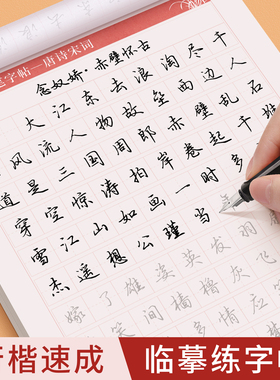 字帖—唐诗宋词
念奴娇·赤壁怀古
大江东去浪淘尽千
风流人物故垒西边人
道是三国周郎赤壁乱石
穿空惊涛拍岸卷起千
雪江山如画一时多
杰遥想公瑾当
嫁了雄姿英发羽
笑间樯橹灰飞
行楷速成
临摹练字